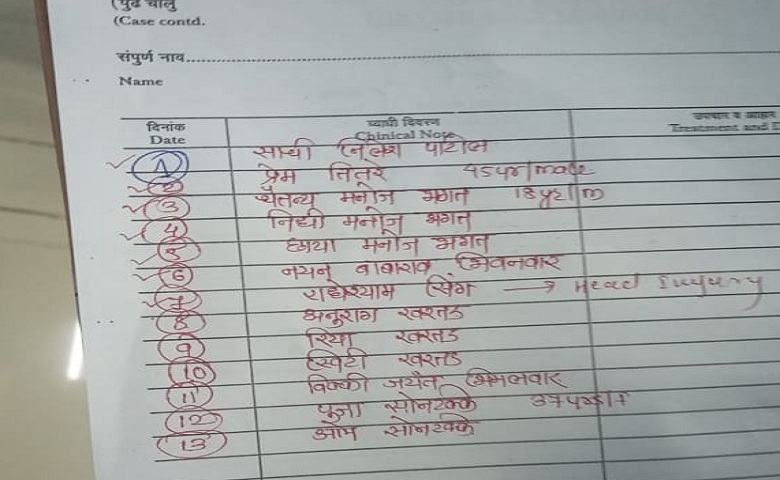 (पुढे चालू
(Case contd.
संपुर्ण नाव
Name
दिनांक व्याधी विवरण उपचार व आहार
Date Chinical Note Treatment and
1 साची निलेश पाटील
2 प्रेम तितरे 45yr/male
3 चैतन्य मनोज भगत 18yr/m
4 निधी मनोज भगत
5 छाया मनोज भगत
6 नयन बाबाराव भिवनवार
7 राधेश्याम सिंग → Head Injury
8 अनुराग खरतड
9 रिया खरतड
10 स्विटी खरतड
11 विक्की जयंत भिमलवार
12 पूजा सोनटक्के 37yr/F
13 ओम सोनटक्के